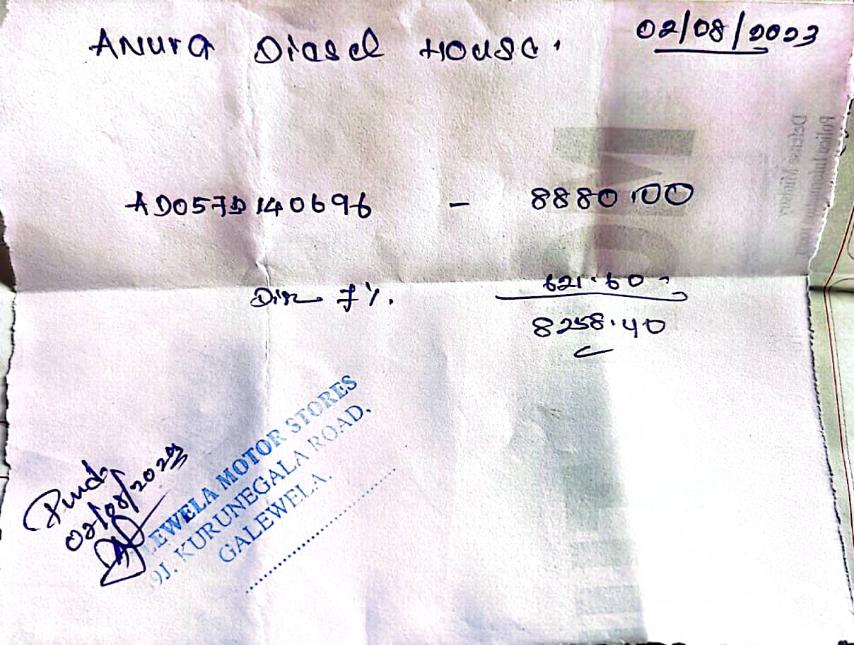 Anura Diesel House. 02/08/2023
AD057D140696 - 8880.00
Dis 7%. 621.60
8258.40
02/08/2023
EWELA MOTOR STORES
91. KURUNEGALA ROAD,
GALEWELA.